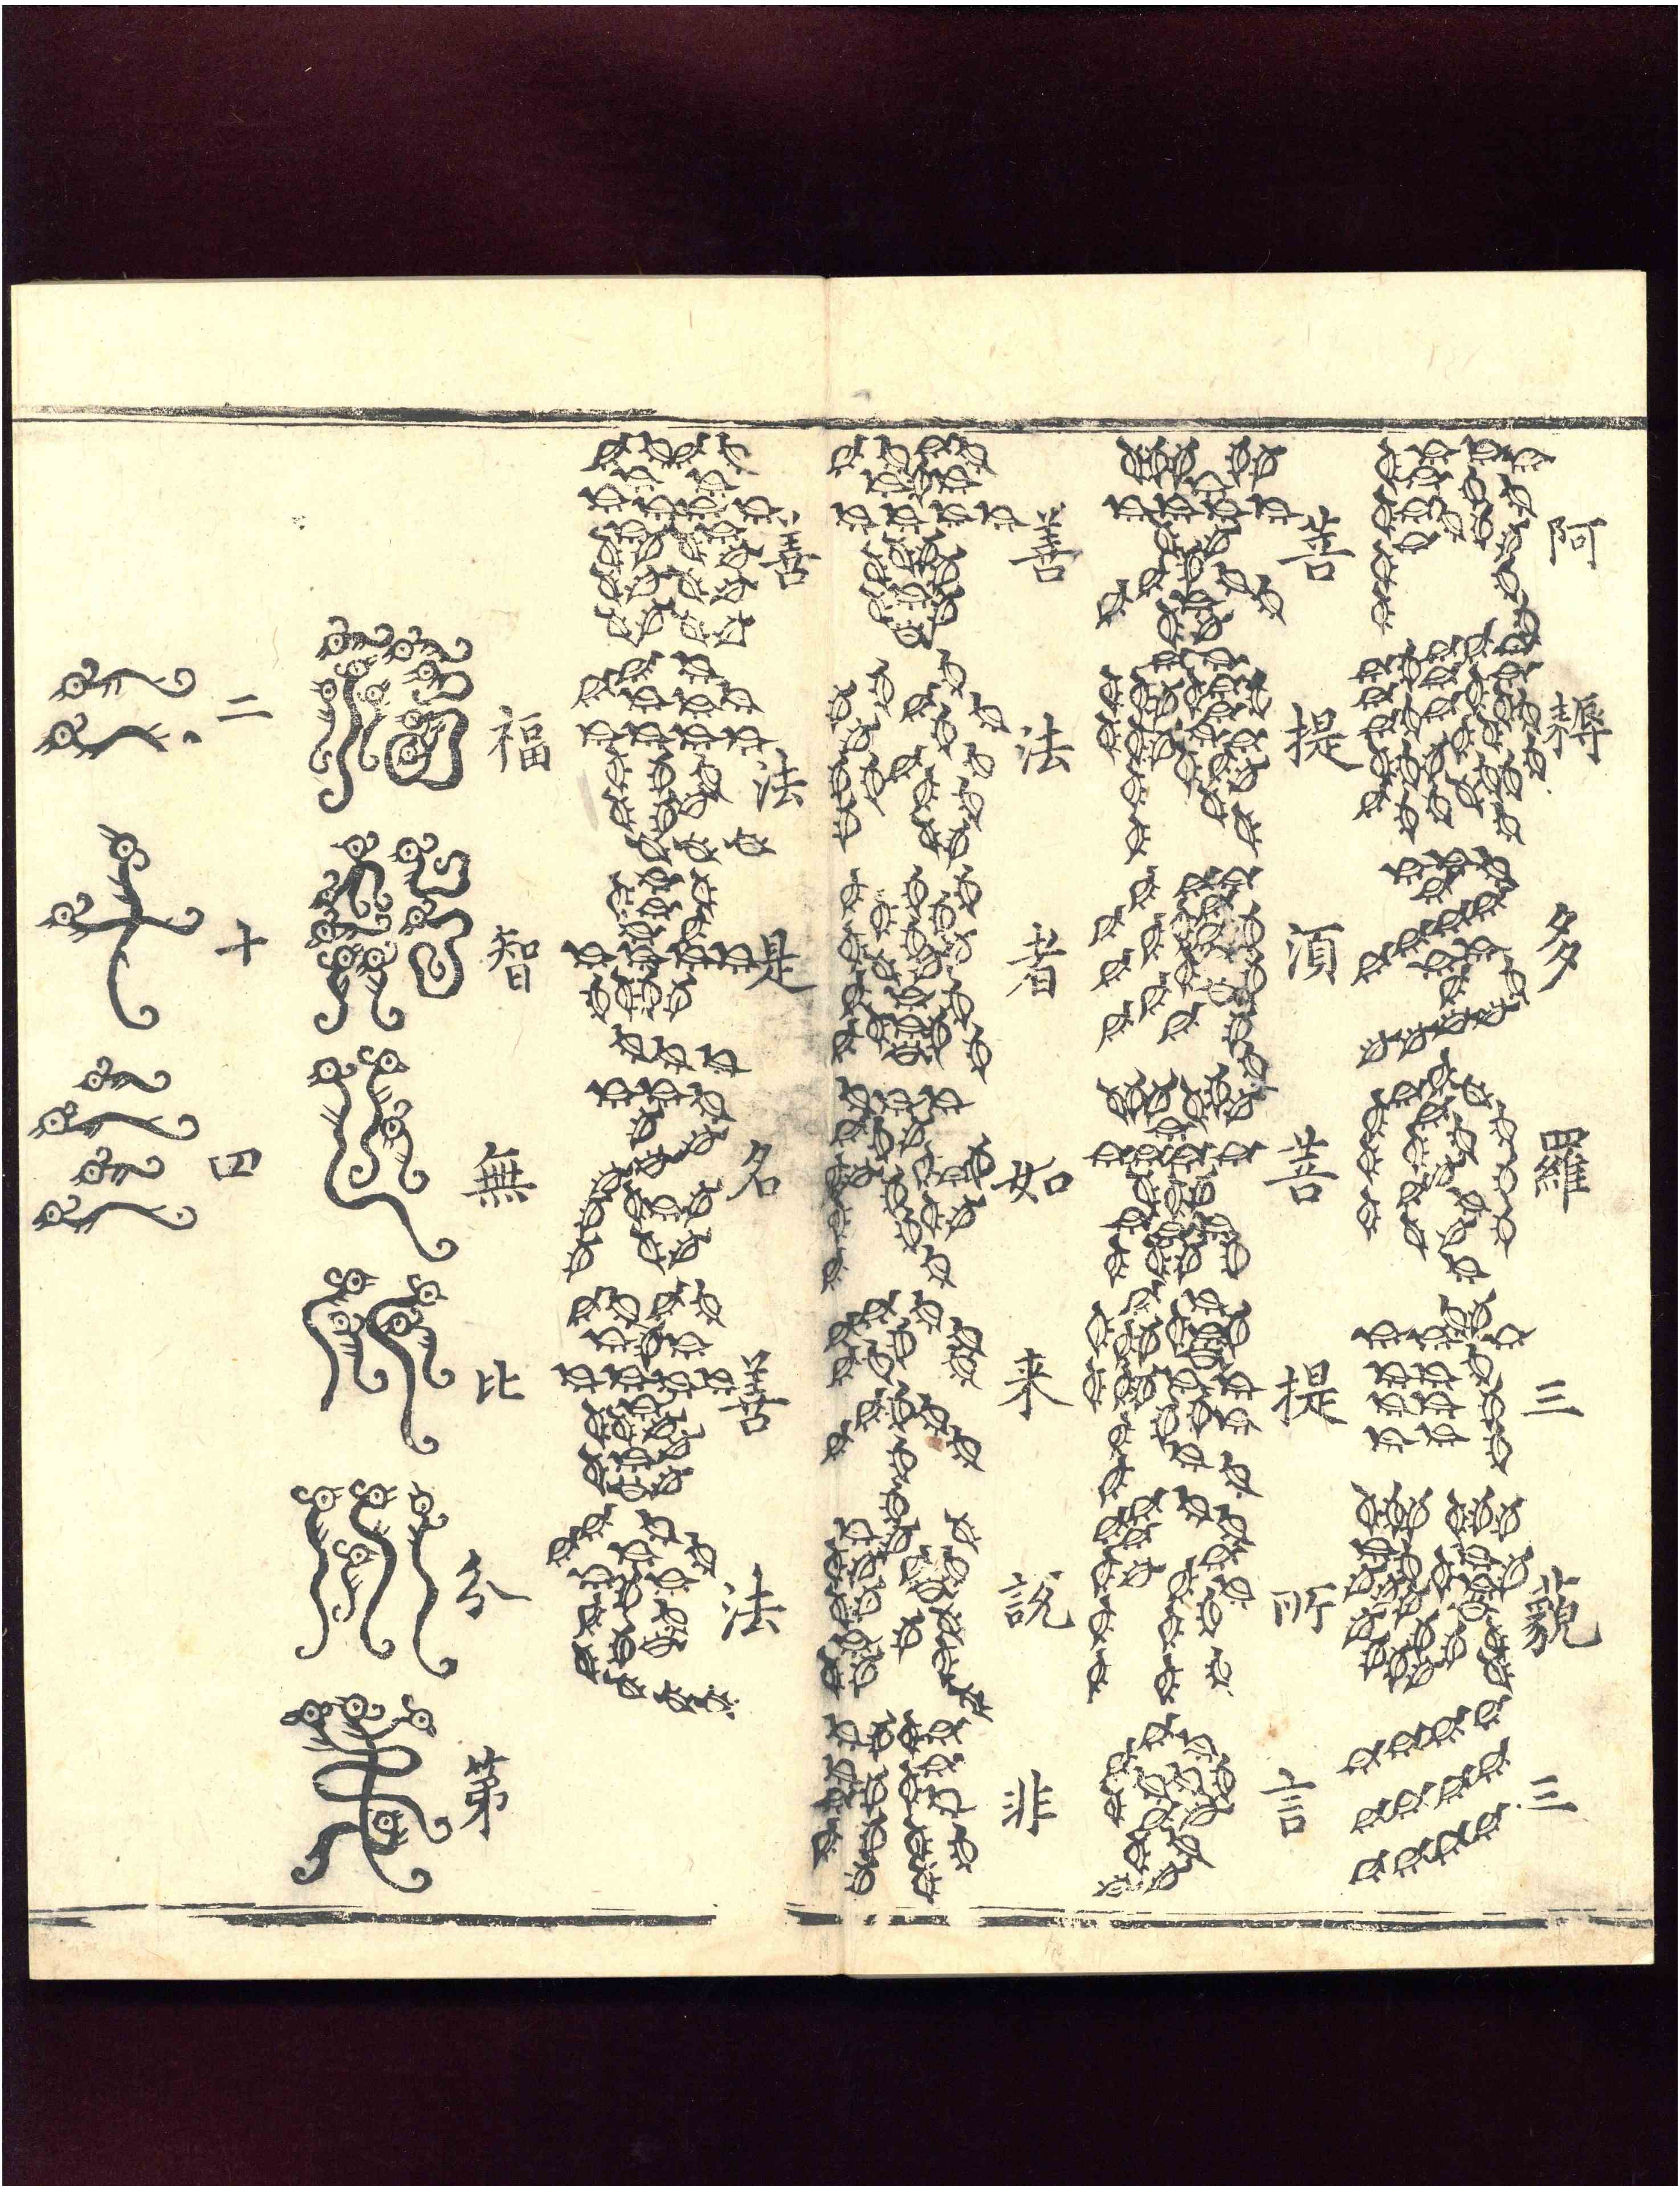 阿耨多羅三藐三
菩提湏菩提所言
善法者如来説非
善法是名善法
福智無比分第
二十四